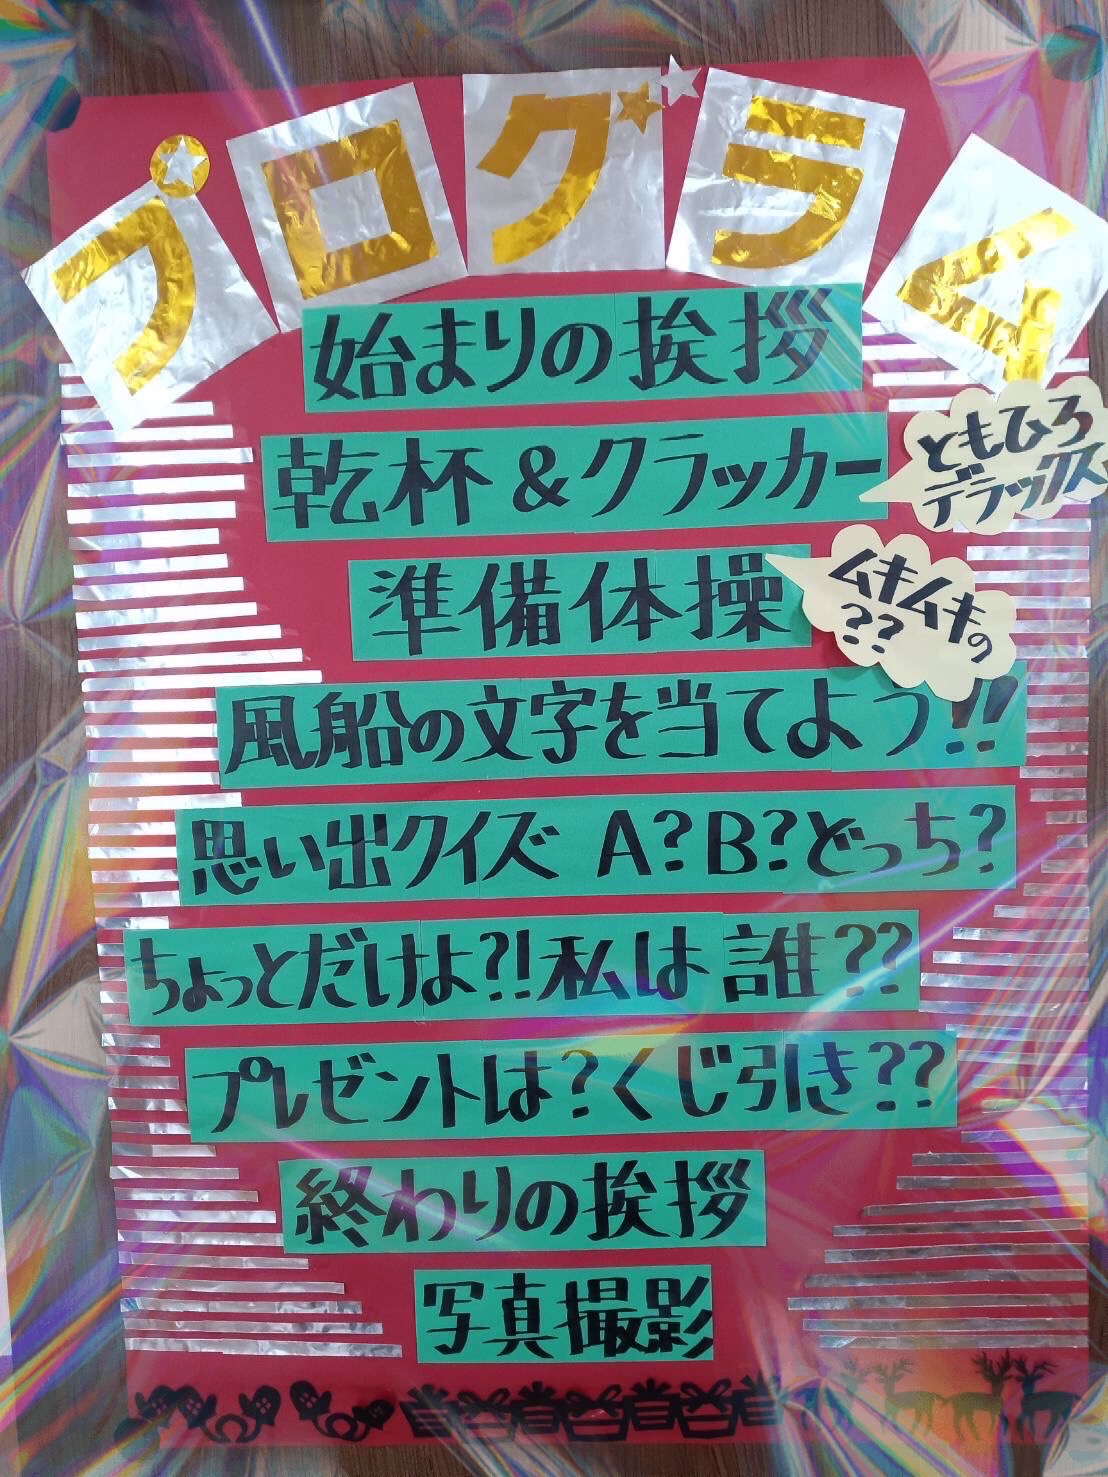 プログラム
始まりの挨拶
乾杯&クラッカー
ともひろ
デラックス
準備体操
ムキムキの
??
風船の文字を当てよう!!
思い出クイズ A?B?どっち?
ちょっとだけよ?!私は誰??
プレゼントは?くじ引き??
終わりの挨拶
写真撮影